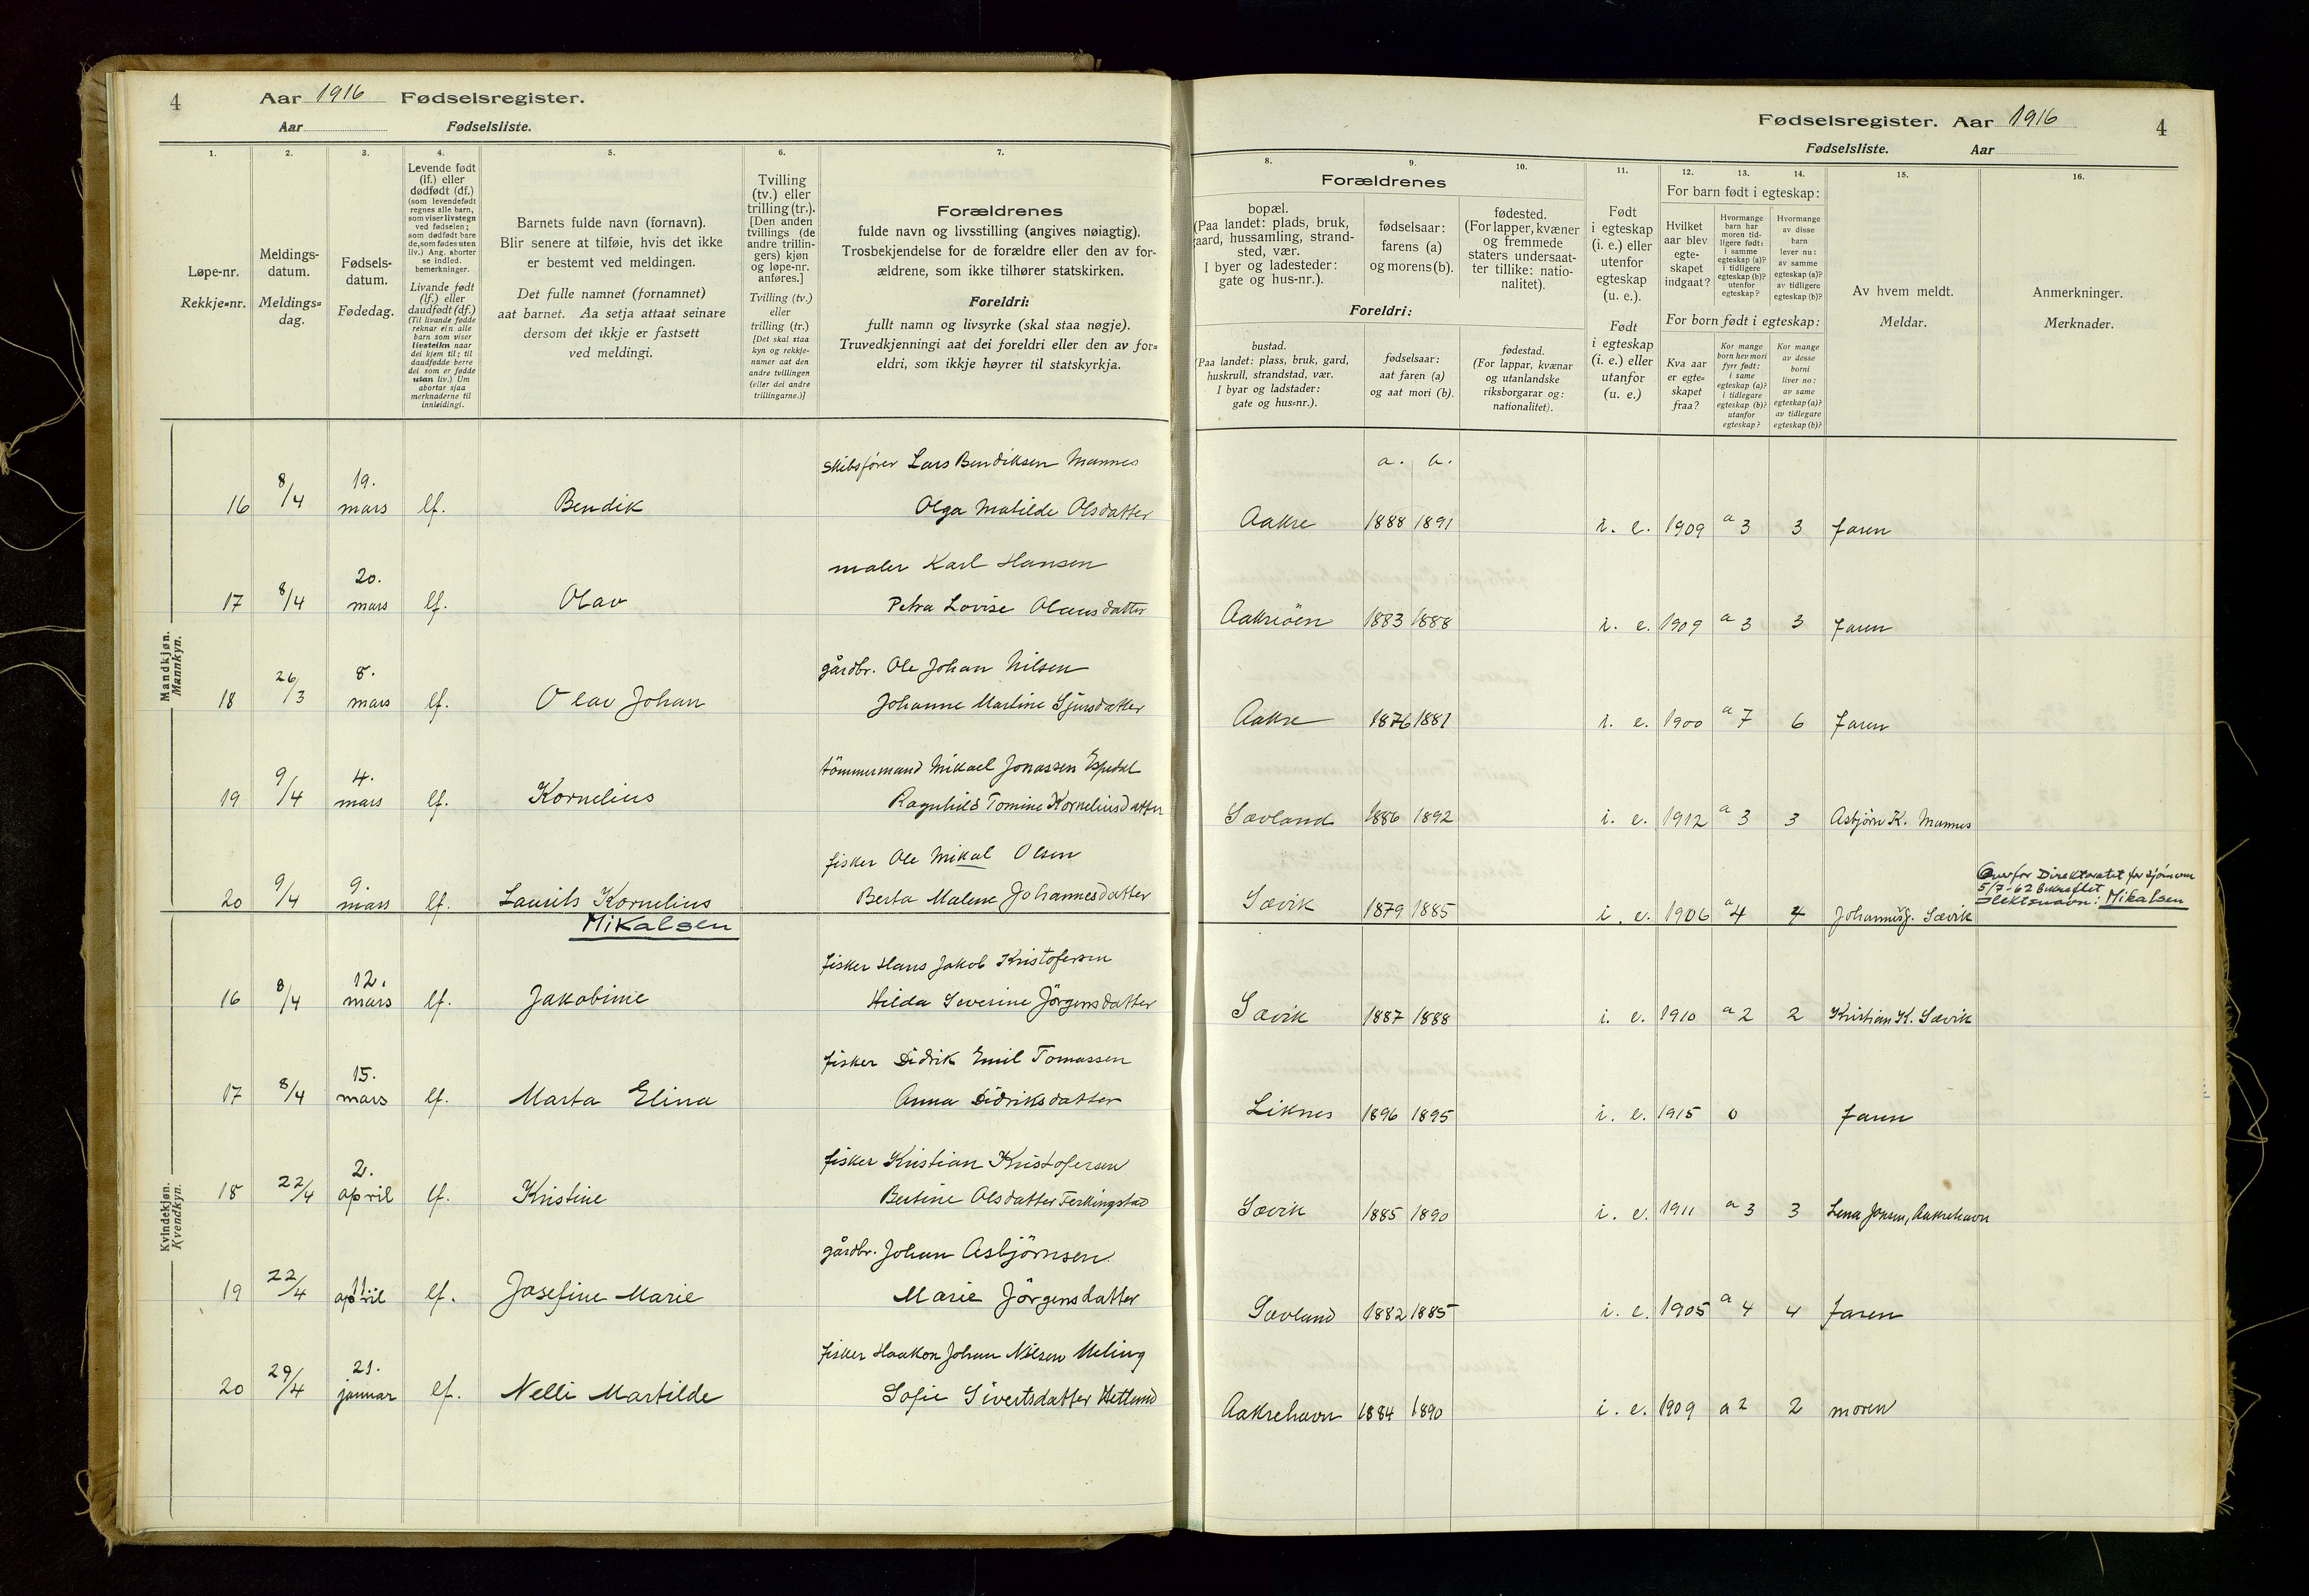 4
Aar 1916 Fødselsregister.
Aar Fødselsliste.
1.
Løpe-nr.
Rekkje-nr.
2.
Meldings-
datum.
Meldings-
dag.
3.
Fødsels-
datum.
Fødedag.
4.
Levende født
(lf.) eller
dødfødt (df.)
(som levendefødt
regnes alle barn,
som viser livstegn
ved fødselen;
som dødfødt bare
de, som fødes uten
liv.) Ang. aborter
se indled.
bemerkninger.
Livande født
(lf.) eller
daudfødt (df.)
(Til livande fødde
reknar ein alle
barn som viser
livsteikn naar
dei kjem til; til
daudfødde berre
dei som er fødde
utan liv.) Um
abortar sjaa
merknaderne til
innleidingi.
5.
Barnets fulde navn (fornavn).
Blir senere at tilføie, hvis det ikke
er bestemt ved meldingen.
Det fulle namnet (fornamnet)
aat barnet. Aa setja attaat seinare
dersom det ikkje er fastsett
ved meldingi.
6.
Tvilling
(tv.) eller
trilling (tr.).
[Den anden
tvillings (de
andre trillin-
gers) kjøn
og løpe-nr.
anføres.]
Tvilling (tv.)
eller
trilling (tr.)
[Det skal staa
kyn og rekkje-
numer aat den
andre tvillingen
(eller dei andre
trillingarne.)]
7.
Forældrenes
fulde navn og livsstilling (angives nøiagtig).
Trosbekjendelse for de forældre eller den av for-
ældrene, som ikke tilhører statskirken.
Foreldri:
fullt namn og livsyrke (skal staa nøgje).
Truvedkjenningi aat dei foreldri eller den av for-
eldri, som ikkje høyrer til statskyrkja.
Mandkjøn.
Mannkyn.
skibsfører Lars Bendiksen Mannes
16 8/4 19. mars lf. Bendik Olga Matilde Olsdatter
maler Karl Hansen
17 8/4 20. mars lf. Olav Petra Lovise Olausdatter
gårdbr. Ole Johan Nilsen
18 26/3 8. mars lf. Olav Johan Johanne Martine Sjursdatter
tömmermand Mikael Jonassen Espedal
19 9/4 4. mars lf. Kornelius Ragnhild Tomine Korneliusdatter
fisker Ole Mikal Olsen
20 9/4 9. mars lf. Laurits Kornelius Berta Malene Johannesdatter
Mikalsen
Kvindekjøn.
Kvendkyn.
fisker Hans Jakob Kristofersen
16 8/4 12. mars lf. Jakobine Hilda Severine Jörgensdatter
fisker Didrik Emil Tomassen
17 8/4 15. mars lf. Marta Elina Anna Didriksdatter
fisker Kristian Kristofersen
18 22/4 2. april lf. Kristine Bertine Olsdatter Ferkingstad
gårdbr. Johan Asbjörnsen
19 22/4 11. april lf. Josefine Marie Marie Jörgensdatter
fisker Haakon Johan Nilsen Meling
20 29/4 21. januar lf. Nelli Martilde Sofie Sivertsdatter Hetland
Fødselsregister. Aar 1916
Fødselsliste. Aar
4
8.
Forældrenes
bopæl.
(Paa landet: plads, bruk,
gaard, hussamling, strand-
sted, vær.
I byer og ladesteder:
gate og hus-nr.).
Foreldri:
bustad.
(Paa landet: plass, bruk, gard,
huskrull, strandstad, vær.
I byar og ladstader:
gate og hus-nr.).
9.
fødselsaar:
farens (a)
og morens (b).
fødselsaar:
aat faren (a)
og aat mori (b).
10.
fødested.
(For lapper, kvæner
og fremmede
staters undersaat-
ter tillike: natio-
nalitet).
fødestad.
(For lappar, kvænar
og utanlandske
riksborgarar og:
nationalitet).
11.
Født
i egteskap
(i. e.) eller
utenfor
egteskap
(u. e.).
Født
i egteskap
(i. e.) eller
utanfor
(u. e.)
For barn født i egteskap:
12.
Hvilket
aar blev
egte-
skapet
indgaat?
13.
Hvormange
barn har
moren tid-
ligere født:
i samme
egteskap (a)?
i tidligere
egteskap (b)?
utenfor
egteskap?
14.
Hvormange
av disse
barn
lever nu:
av samme
egteskap (a)?
av tidligere
egteskap (b)?
For born født i egteskap:
Kva aar
er egte-
skapet
fraa?
Kor mange
born hev mori
fyrr født:
i same
egteskap (a)?
i tidlegare
egteskap (b)?
utanfor
egteskap?
Kor mange
av desse
borni
liver no:
av same
egteskap (a)?
av tidlegare
egteskap (b)?
15.
Av hvem meldt.
Meldar.
16.
Anmerkninger.
Merknader.
a. b.
Aakre 1888 1891 i. e. 1909 a 3 3 faren
Aakreöen 1883 1888 i. e. 1909 a 3 3 faren
Aakre 1876 1881 i. e. 1900 a 7 6 faren
Sævland 1886 1892 i. e. 1912 a 3 3 Asbjörn K. Mannes
Overfor Direktoratet for sjømenn
5/7-62 bekreftet
slektsnavn: Mikalsen
Sævik 1879 1885 i. e. 1906 a 4 4 Johannes J. Sævik
Sævik 1887 1888 i. e. 1910 a 2 2 Kristian K. Sævik
Liknes 1896 1895 i. e. 1915 0 faren
Sævik 1885 1890 i. e. 1911 a 3 3 Lena Jensen, Aakrehavn
Sævland 1882 1885 i. e. 1905 a 4 4 faren
Aakrehavn 1884 1890 i. e. 1909 a 2 2 moren